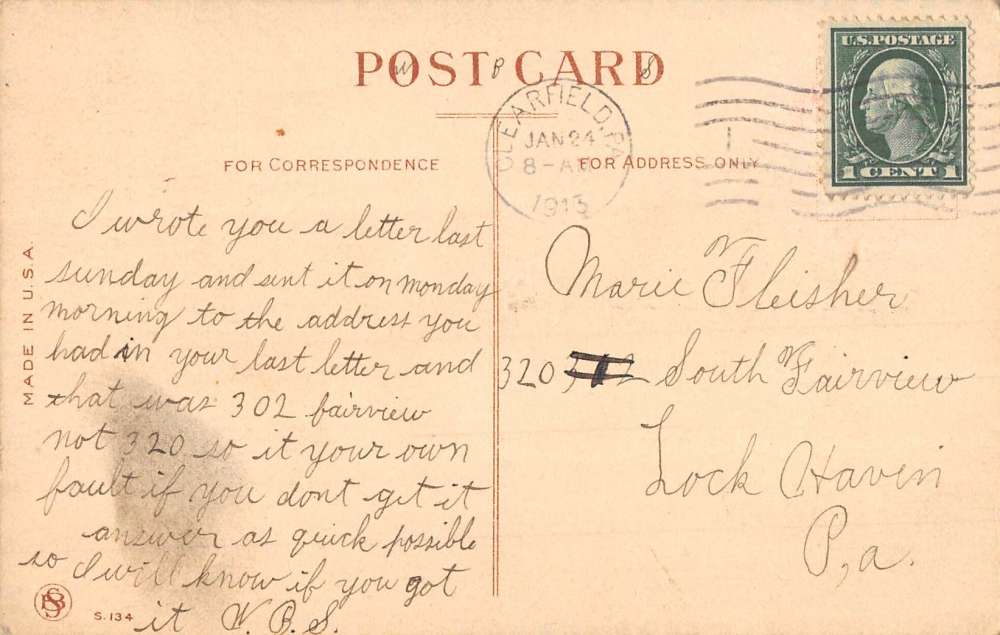 POST CARD
W B S
CLEARFIELD, PA.
JAN 24
8 - AM
1915
U.S. POSTAGE
1 CENT 1
FOR CORRESPONDENCE
FOR ADDRESS ONLY
MADE IN U.S.A.
I wrote you a letter last
sunday and sent it on monday
morning to the address you
had in your last letter and
that was 302 fairview
not 320 so it your own
fault if you dont get it
answer as quick possible
so I will know if you got
it W. B. S.
S. 134
Marie Fleisher
320 South Fairview
Lock Haven
P,a.